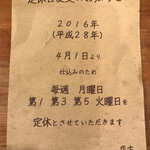 定休日変更のお知らせ
2016年
(平成28年)
4月1日より
仕込みのため
毎週 月曜日
第1 第3 第5 火曜日を
定休とさせていただきます
店主